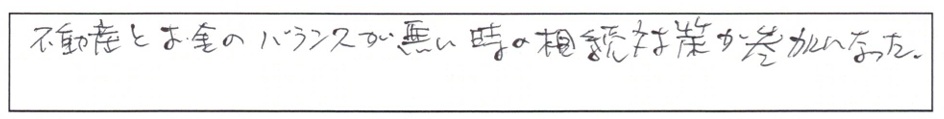 不動産とお金のバランスが悪い時の相続対策が参考になった。